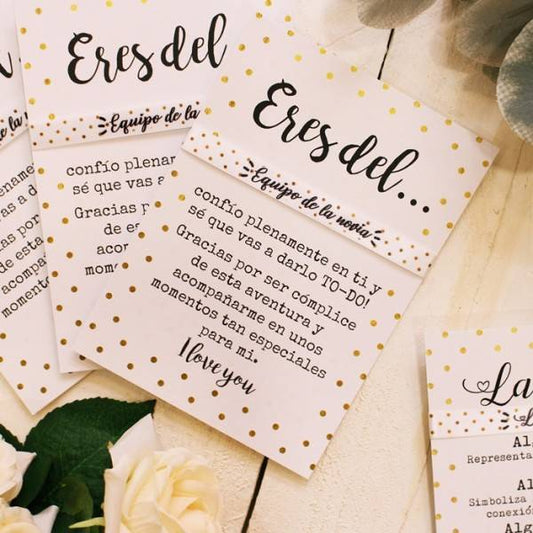 Eres del...
Equipo de la novia
confío plenamente en ti y
sé que vas a darlo TO-DO!
Gracias por ser cómplice
de esta aventura y
acompañarme en unos
momentos tan especiales
para mi.
I love you
Eres del
Equipo de la
confío plenamente
sé que vas a
Gracias por
de es
acom
momen
de la
plenamente
vas a
por
La
Alg
Representa
Al
Simboliza
conexión
Alg